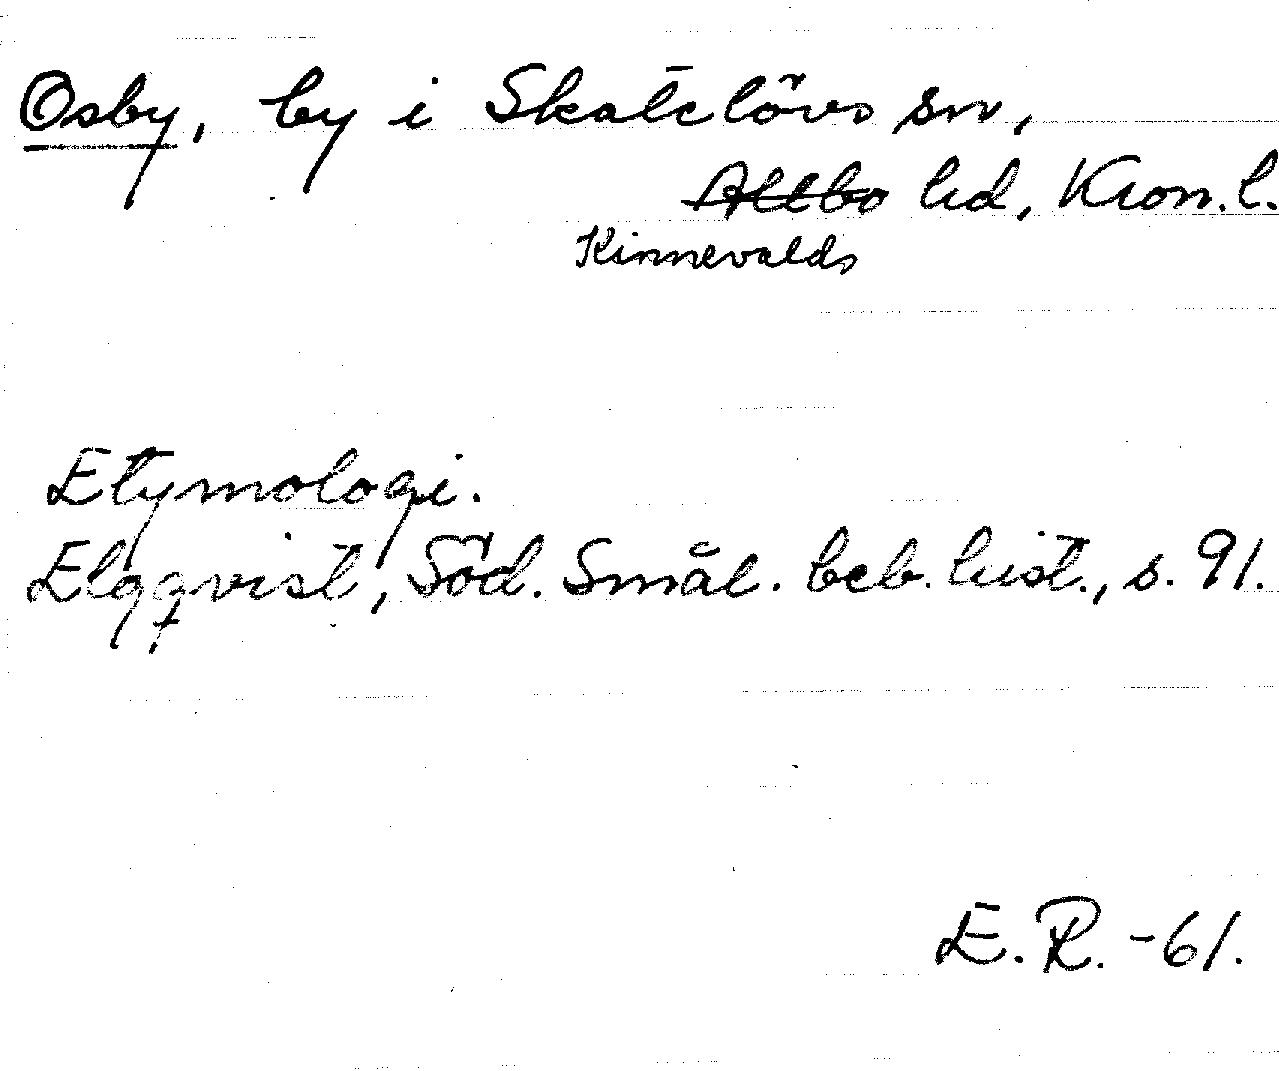 Osby, by i Skatelövs sn,
Allbo hd, Kron. l.
Kinnevalds
Etymologi.
Elgqvist, Söd. Smål. beb. hist., s. 91.
E. R. -61.